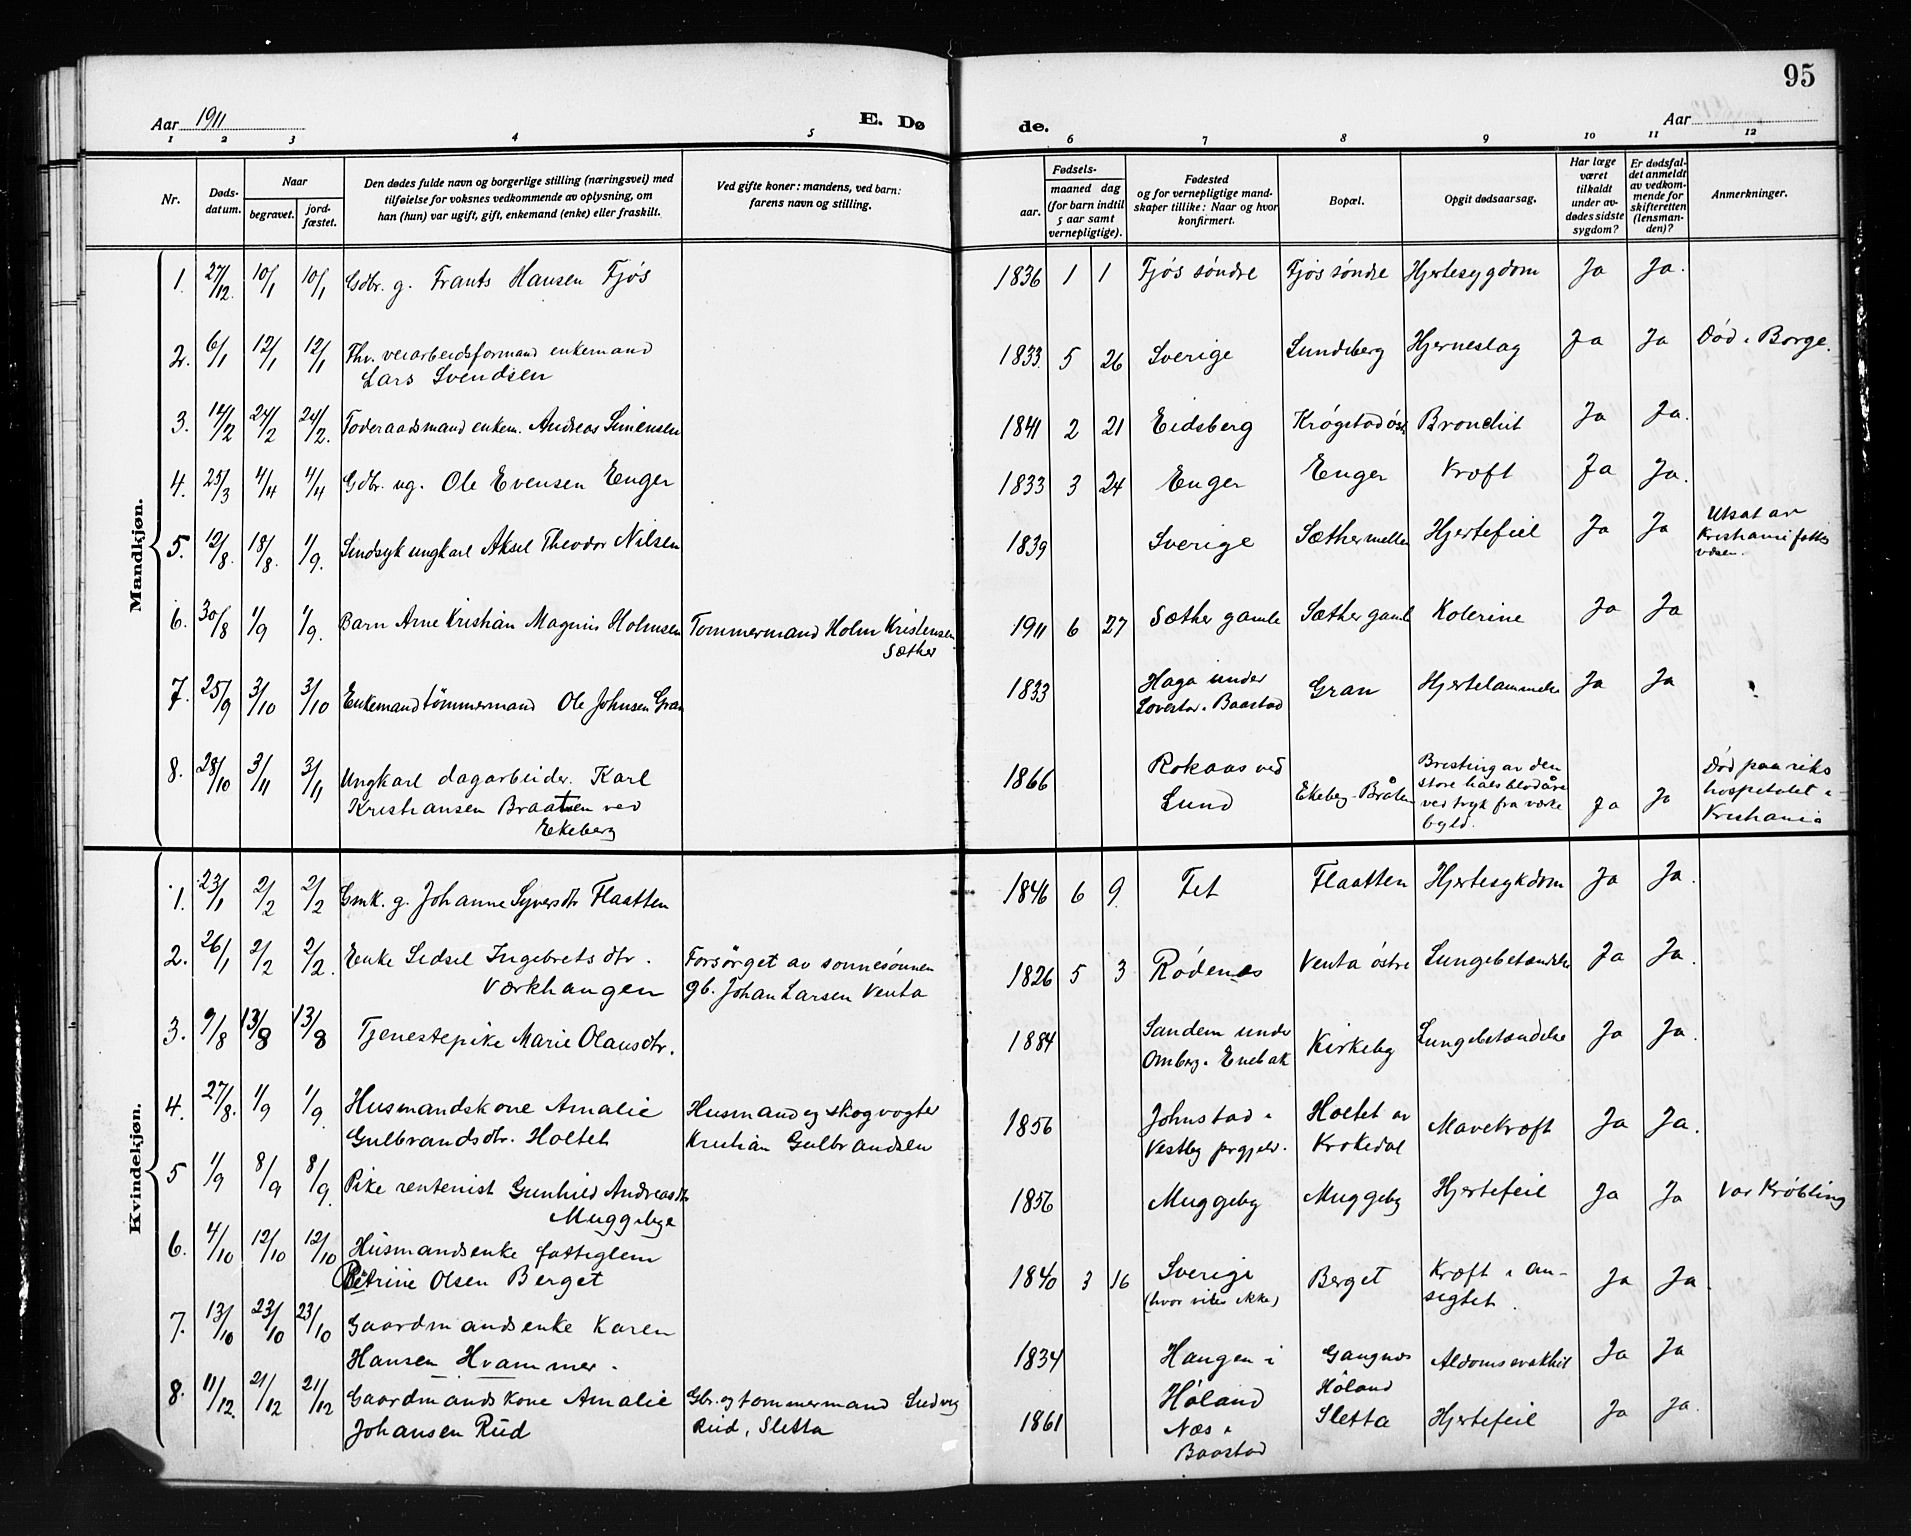 95
Aar 1911
E. Dø
de.
Aar
1 2 3 4 5 6 7 8 9 10 11 12
Nr.
Døds-
datum.
Naar
begravet.
jord-
fæstet.
Den dødes fulde navn og borgerlige stilling (næringsvei) med
tilføielse for voksnes vedkommende av oplysning, om
han (hun) var ugift, gift, enkemand (enke) eller fraskilt.
Ved gifte koner: mandens, ved barn:
farens navn og stilling.
Fødsels-
aar.
maaned dag
(for barn indtil
5 aar samt
vernepligtige).
Fødested
og for vernepligtige mand-
skaper tillike: Naar og hvor
konfirmert.
Bopæl.
Opgit dødsaarsag.
Har læge
været
tilkaldt
under av-
dødes sidste
sygdom?
Er dødsfal-
det anmeldt
av vedkom-
mende for
skifteretten
(lensman-
den)?
Anmerkninger.
Mandkjøn.
1. 27/12. 10/1 10/1 Gdbr. g. Frants Hansen Fjøs 1836 1 1 Fjøs søndre Fjøs søndre Hjertesygdom Ja Ja.
2. 6/1 12/1 12/1 Fhv. veiarbeidsformand enkemand
Lars Svendsen 1833. 5 26 Sverige Lundeberg Hjerneslag Ja Ja Død i Borge.
3. 14/2 24/2 24/2. Føderaadsmand enkem. Andreas Simensen 1841 2 21 Eidsberg Krøgstad øst Bronchit Ja Ja.
4. 25/3 4/4 4/4 Gdbr. ug. Ole Evensen Enger 1833 3 24 Enger Enger Kræft Ja Ja.
5. 12/8. 18/8. 1/9. Sindsyk ungkarl Aksel Theodor Nilsen 1839 Sverige Sæther mellem Hjertefeil Ja Ja Utsat av
Kristiania fattig
væsen.
6. 30/8 1/9 1/9. Barn Arne Kristian Magnus Holmsen Tømmermand Holm Kristensen
Sæther 1911 6 27 Sæther gamle Sæther gamle Kolerine Ja Ja
7. 25/9 3/10 3/10 Enkemand tømmermand Ole Johnsen Gran 1833 Haga under
Lovestad i Baastad Gran Hjertelammelse Ja Ja
8. 28/10 3/11 3/11 Ungkarl dagarbeider. Karl
Kristiansen Braaten ved
Ekeberg 1866 Rokaas ved
Lund Ekeberg-Bråten Bristing av den
store halsblodåre
ved tryk fra verke
byld. Ja Ja Død paa riks
hospitalet i
Kristiania
Kvindekjøn.
1. 23/1 2/2 2/2 Gmk. g. Johanne Syversdtr Flaatten 1846 6 9. Fet Flaatten Hjertesykdom Ja Ja.
2. 26/1 2/2 2/2. Enke Sidsel Ingebretsdtr.
Værkhangen Forsørget av sønnesønnen
gb. Johan Larsen Venta 1826 5 3 Rødenes Venta østre Lungebetændelse Ja Ja.
3. 9/8 13/8 13/8 Tjenestepike Marie Olausdtr. 1884 Sandem under
Omberg i Enebak Kirkeby Lungebetændelse Ja Ja.
4. 27/8. 1/9 1/9. Husmandskone Amalie
Gulbrandsdtr. Holtet Husmand og skogvogter
Kristian Gulbrandsen 1856 Johnstad i
Vestby prgjeld. Holtet av
Krokedal Mavekræft Ja Ja.
5 1/9 8/9 8/9. Pike rentenist Gunhild Andreasdtr
Muggebye 1856 Muggeby Muggeby Hjertefeil Ja Ja Var Krøbling
6. 4/10 12/10 12/10 Husmandsenke fattiglem
Petrine Olsen Berget 1840 3 16 Sverige
(hvor vites ikke) Berget Kræft i an-
sigtet. Ja Ja.
7. 13/10 23/10 23/10 Gaardmandsenke Karen
Hansen Hvammer. 1834 Haugen i
Høland Gangnæs
Høland Aldomssvakhet Ja Ja
8. 11/12. 21/12 21/12 Gaardmandskone Amalie
Johansen Rud Gbr. og tømmermand Ludvig
Rud, Sletta 1861 Næs i
Baastad Sletta Hjertefeil Ja Ja.